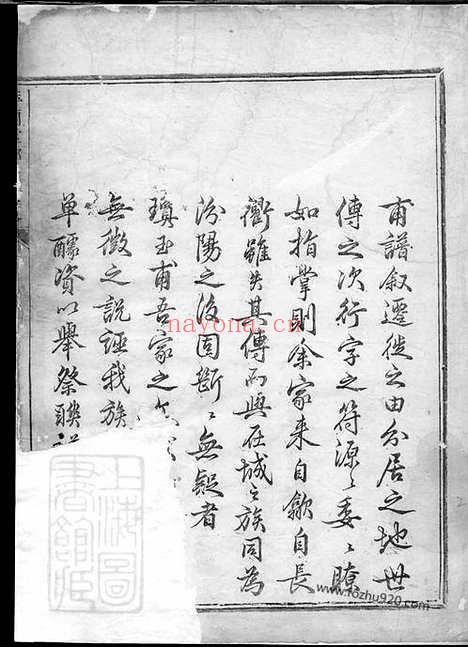 甫譜叙遷徙之由分居之地世
傳之次行字之符源々委々瞭
如指掌則余家来自歙自長
衢雖失其傳而與在城之族同為
汾陽之後固斷々無疑者
瓚玉甫吾家之
無徵之說誣我族
单醵資以舉祭聯
上海圖書館藏
nayona.cn
www.fozhu920.com